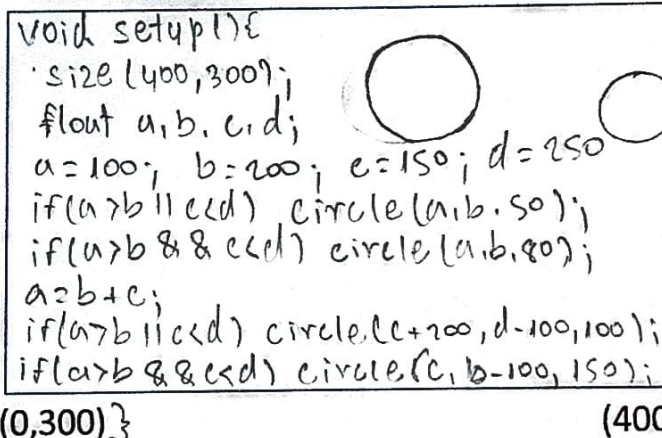 void setup(){
size(400,300);
float a,b,c,d;
a=100; b=200; c=150; d=250
if(a>b || c<d) circle(a,b,50);
if(a>b && c<d) circle(a,b,80);
a=b+c;
if(a>b || c<d) circle(c+200,d-100,100);
if(a>b && c<d) circle(c,b-100,150);
(0,300) } (400